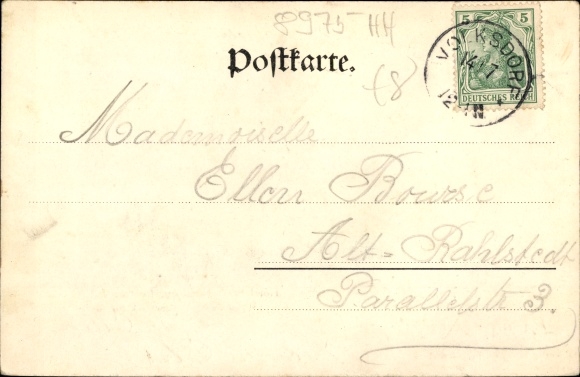 8975 HH
Postkarte.
5 5
DEUTSCHES REICH
VOLKSDORF
14/7
12-1N
Mademoiselle
Ellen Bourse
Alt-Rahlstedt
Parallelstr 3.